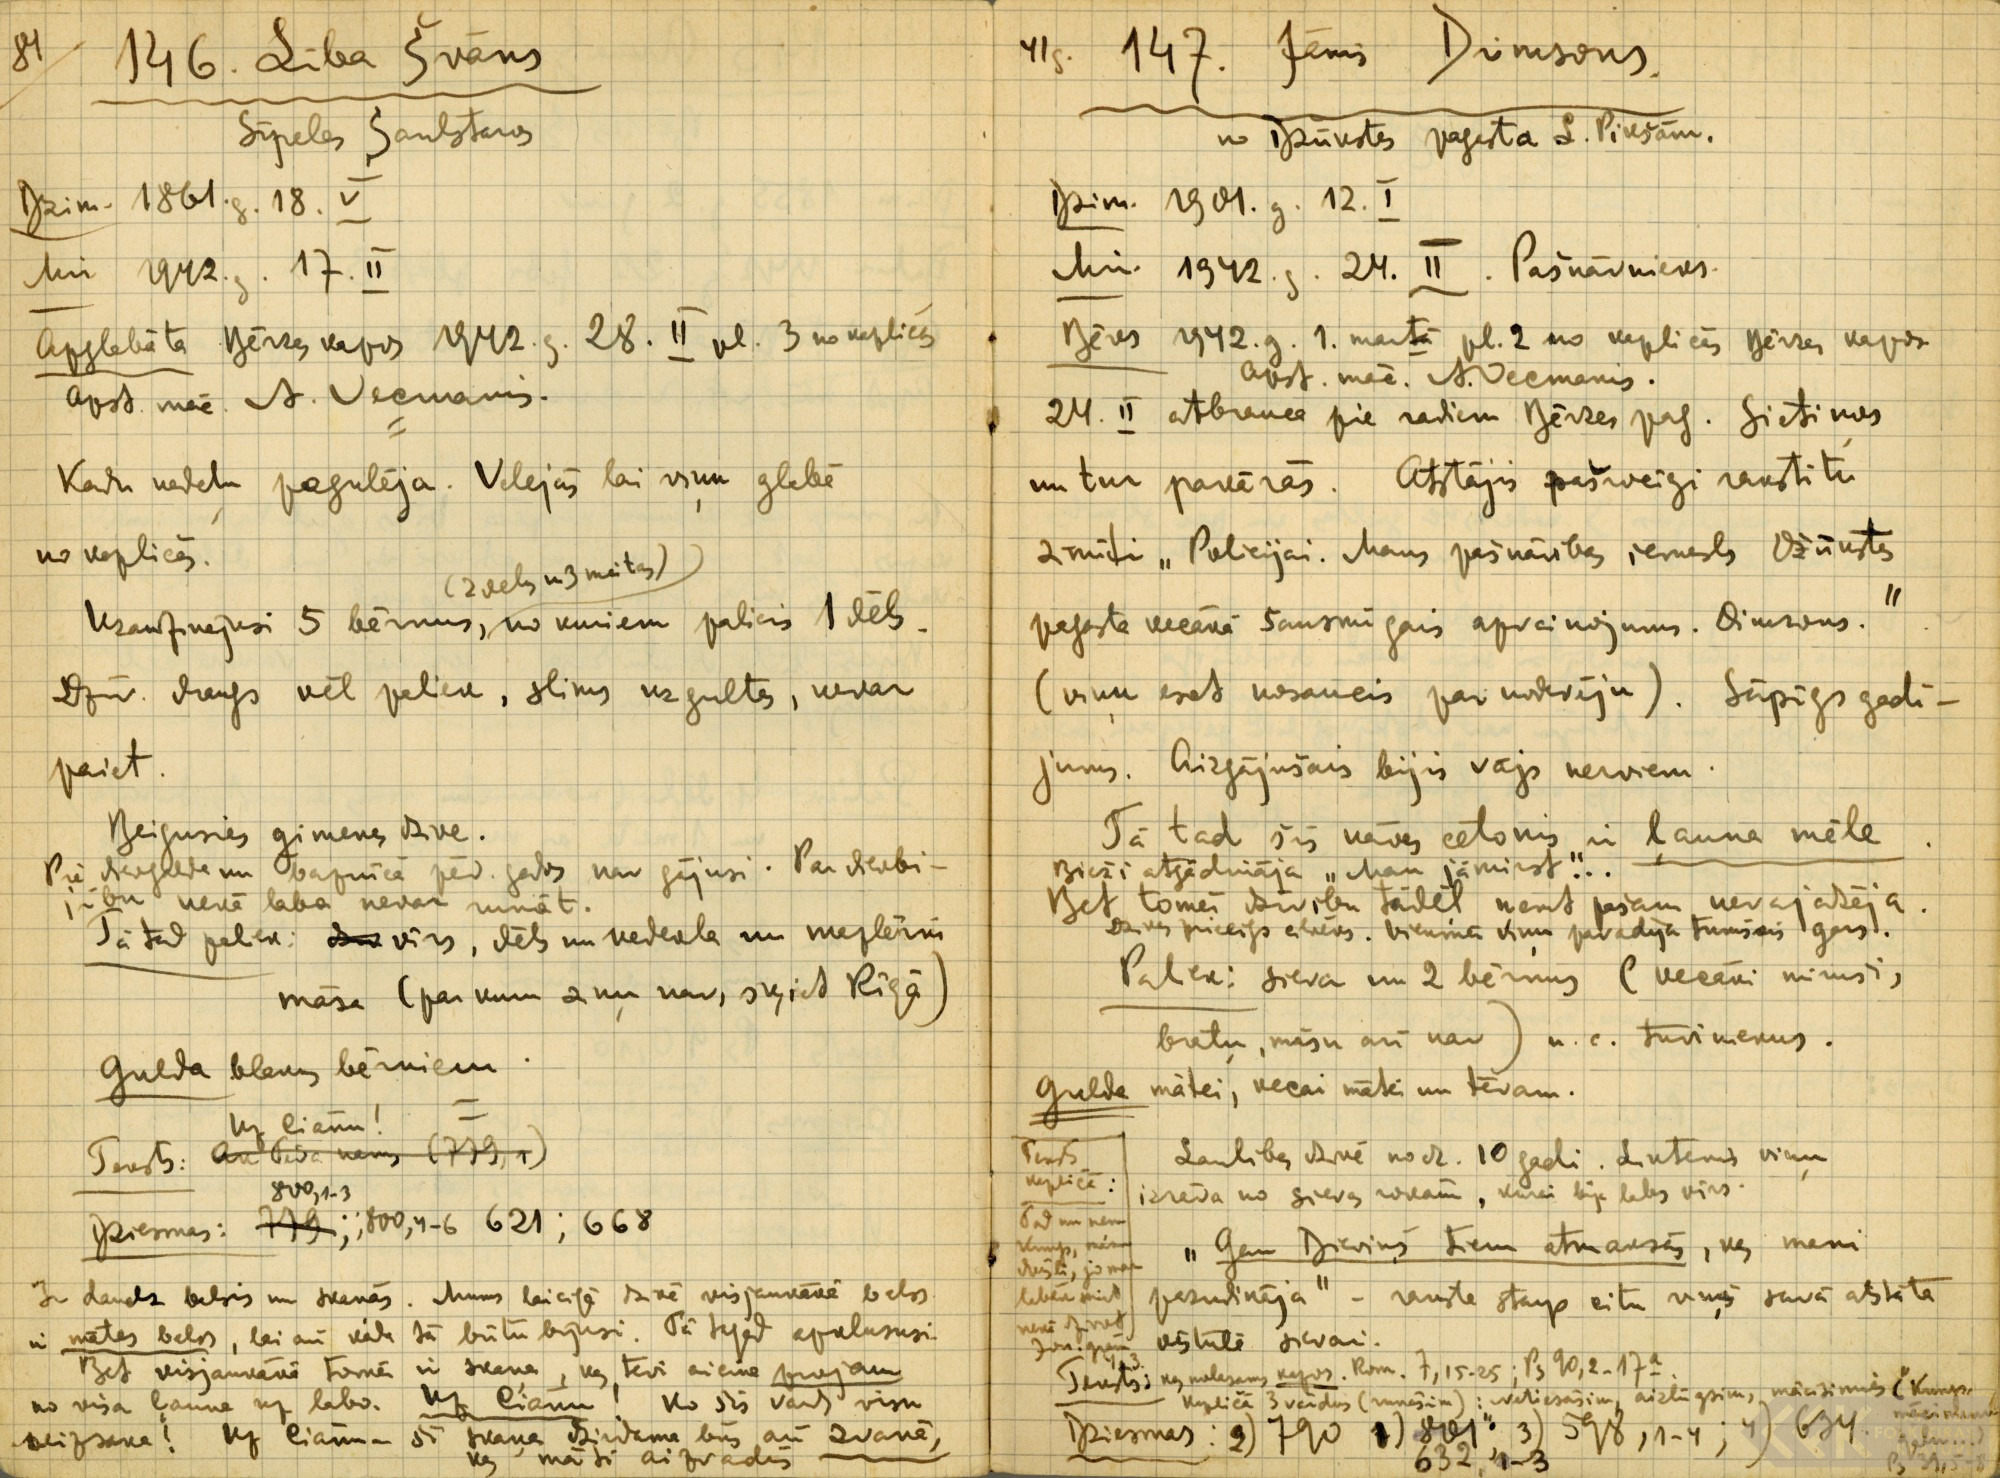 81
146. Lība Švāns
Sīpeles Saulstaros
Dzim. 1861.g. 18. V
Mir. 1942.g. 17. II
Apglabāta Bērzes kapos 1942.g. 28. II pl. 3 no kapličas
Apst. māc. A. Vecmanis.
Kādu nedēļu pagulēja. Vēlējās lai viņu glabā
no kapličas.
(2 dēls un 3 meitas)
Uzaudzinājusi 5 bērnus, no kuriem palicis 1 dēls.
Dzīv. draugs vēl paliek, slims uz gultas, nevar
paiet.
Beigusies ģimenes dzīve.
Pie dievgalda un baznīcā pēd. gados nav gājusi. Par dievbi-
jību nekā laba nevar runāt.
Tā tad paliek: vīrs, dēls un vedekla un mazbērni
māsa (par kuru ziņu nav, šķiet Rīgā)
Gulda blakus bērniem.
Uz Ciānu!
Teksts: (779, 1)
800,1-3
Dziesmas: 779; 800,4-6 621; 668
Ir daudz balsis un skaņas. Mums laicīgā dzīvē visjaukākā balss
ir mātes balss, lai arī kāda tā būtu bijusi. Tā tagad apklususi.
Bet visjaukākā tomēr ir skaņa, kas tevi aicina projām
no visa ļauna uz labo. Uz Ciānu! Ko šis vārds visu
neizsaka! Uz Ciānu šī skaņa dzirdama būs arī zvanā,
kas māti aizvadīs
41g. 147. Jānis Dimsons.
no Džūkstes pagasta L. Pikšām.
Dzim. 1901.g. 12. I
Mir. 1942.g. 24. II. Pašnāvnieks.
Bēres 1942.g. 1. martā pl. 2 no kapličas Bērzes kapos
Apst. māc. A. Vecmanis.
24. II atbrauca pie radiem Bērzes pag. Sietiņos
un tur pakārās. Atstājis pašrocīgi rakstītu
zīmīti „Policijai. Mans pašnāvības iemesls Džūkstes
pagasta vecākā šausmīgais apvainojums. Dimsons."
(viņu esot nosaucis par nodevēju). Sāpīgs gadī-
jums. Aizgājušais bijis vājš nerviem.
Tā tad šīs nāves cēlonis ir ļauna mēle.
Bieži atgādināja „Man jāmirst"...
Bet tomēr dzīvību tādēļ ņemt pašam nevajadzēja.
Dzīves priecīgs cilvēks. Vienmēr viņu pavadīja tumšais gars.
Paliek: sieva un 2 bērnus (vecāki miruši,
brāļu, māsu arī nav) u.c. tuviniekus.
Gulda mātei, vecai mātei un tēvam.
Teksts
kapličā:
Tad nu ņem
Kungs, manu
dvēseli, jo man
labāk mirt
nekā dzīvot
Jon. grām
4,3.
Laulības dzīvē nodz. 10 gadi. Liktenis viņu
izrāva no sievas rokām, kurai bija labs vīrs.
„Gan Dieviņš tiem atmaksās, kas mani
pazudināja" – raksta starp citu viņš savā atstātā
vēstulē sievai.
Teksts: kas nolasams kapos. Rom. 7,15-25; Ps 90,2-17ª.
Kapličā 3 vārdus (runāsim): netiesāsim, aizlūgsim, mācīsimies („Kungs
māci mums
Dziesmas: 2) 790 1) 801; 3) 598,1-4; 4) 634.
632, 1-3
Ps 39,5-8